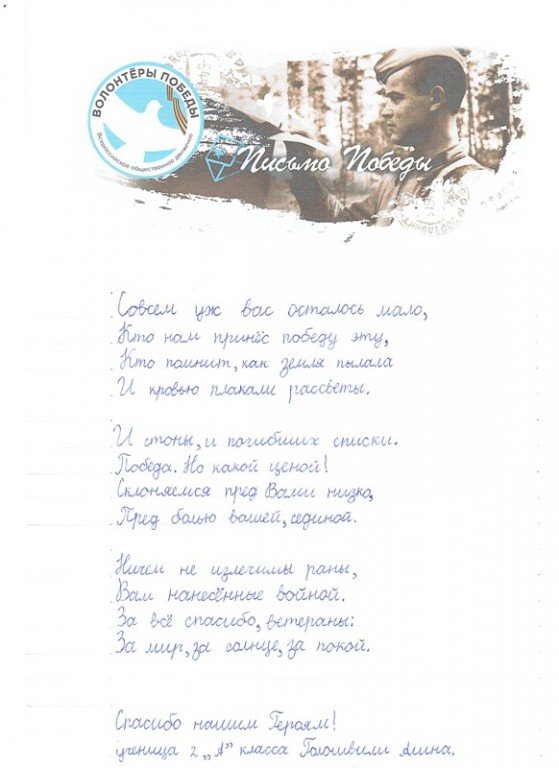 ВОЛОНТЁРЫ ПОБЕДЫ
Всероссийское общественное движение
Письмо Победы
Совсем уж вас осталось мало,
Кто нам принёс победу эту,
Кто помнит, как земля пылала
И кровью плакали рассветы.
И стоны, и погибших списки.
Победа. Но какой ценой!
Склоняемся пред Вами низко,
Пред болью вашей, сединой.
Ничем не излечимы раны,
Вам нанесённые войной.
За всё спасибо, ветераны:
За мир, за солнце, за покой.
Спасибо нашим Героям!
ученица 2 „А” класса Голошвили Амина.